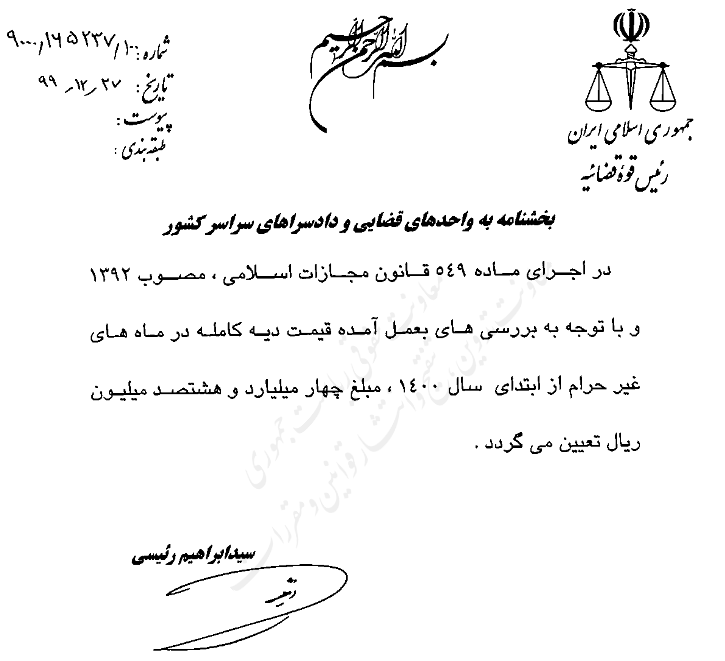 بسم الله الرحمن الرحیم
جمهوری اسلامی ایران
رئیس قوهٔ قضائیه
شماره: ۹۰۰۰/۱۶۵۲۳۷/۱۰۰
تاریخ: ۹۹-۱۲-۲۷
پیوست:
طبقه‌بندی:
بخشنامه به واحدهای قضایی و دادسراهای سراسر کشور
در اجرای ماده ٥٤٩ قانون مجازات اسلامی ، مصوب ۱۳۹۲
و با توجه به بررسی های بعمل آمده قیمت دیه کامله در ماه های
غیر حرام از ابتدای سال ۱٤۰۰ ، مبلغ چهار میلیارد و هشتصد میلیون
ریال تعیین می گردد .
سیدابراهیم رئیسی
معاونت حقوقی ریاست جمهوری
معاونت تدوین، تنقیح و انتشار قوانین و مقررات